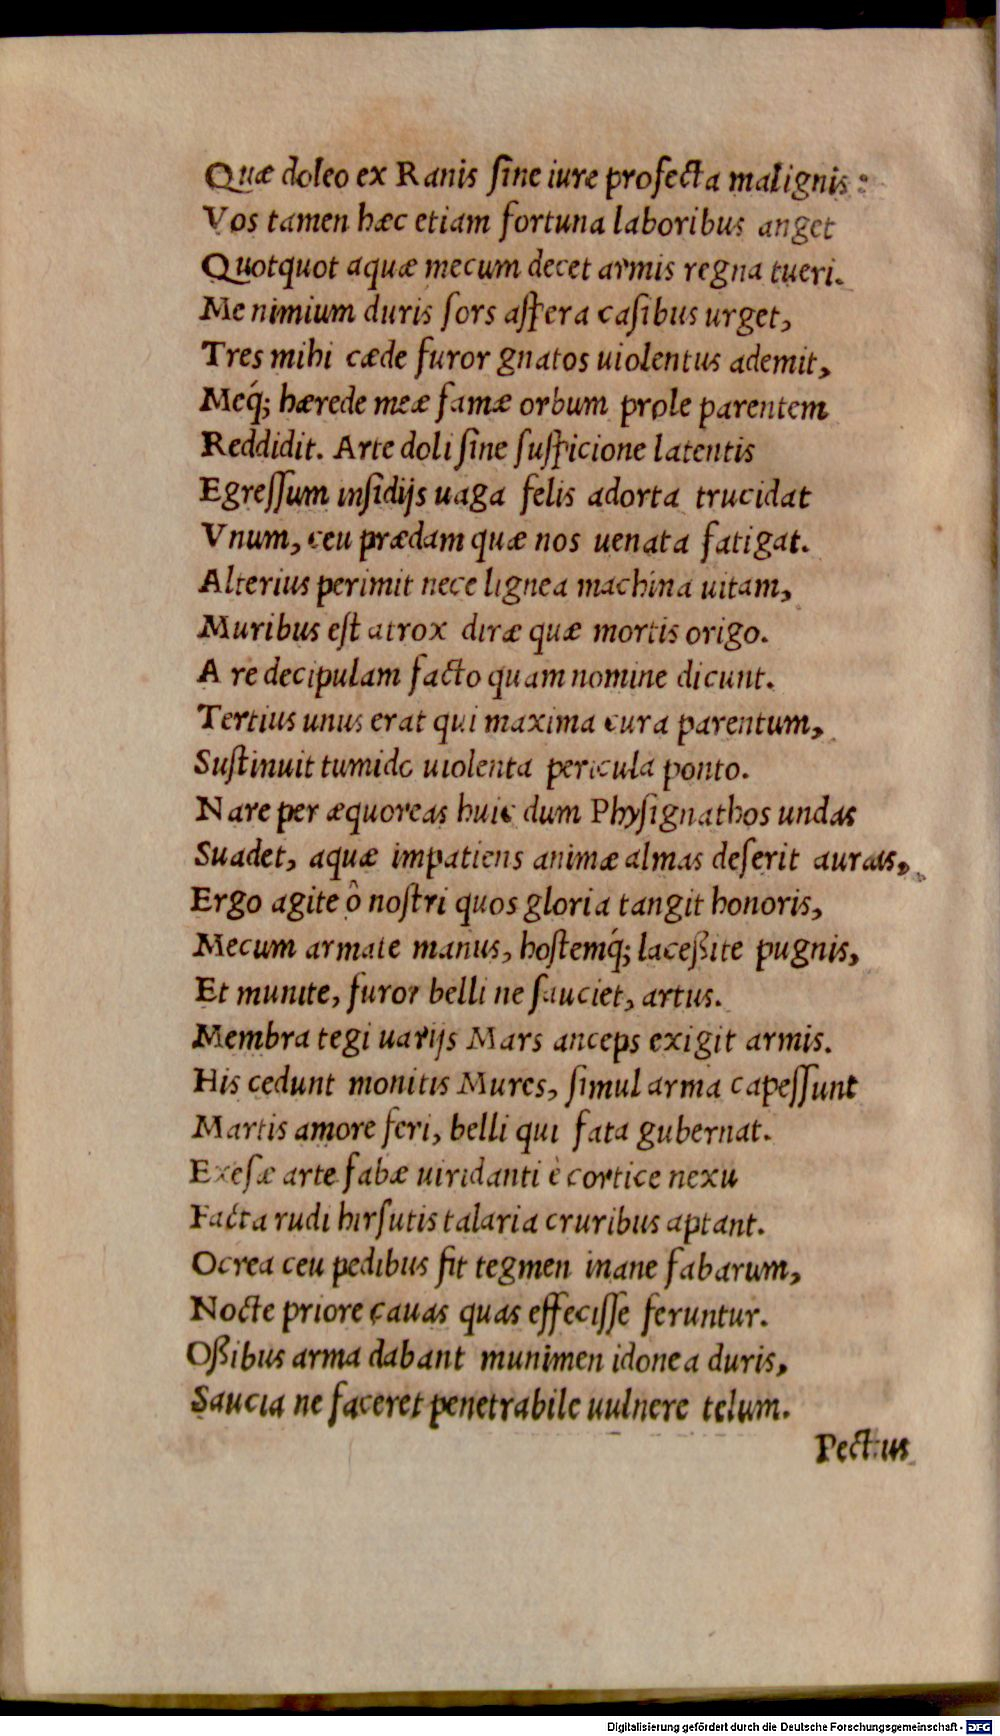 Quæ doleo ex Ranis ſine iure profecta malignis:
Vos tamen hæc etiam fortuna laboribus anget
Quotquot aquæ mecum decet armis regna tueri.
Me nimium duris ſors aſpera caſibus urget,
Tres mihi cæde furor gnatos uiolentus ademit,
Meq́; hærede meæ famæ orbum prole parentem
Reddidit. Arte doli ſine ſuſpicione latentis
Egreſſum inſidijs uaga felis adorta trucidat
Vnum, ceu prædam quæ nos uenata fatigat.
Alterius perimit nece lignea machina uitam,
Muribus eſt atrox diræ quæ mortis origo.
A re decipulam facto quam nomine dicunt.
Tertius unus erat qui maxima cura parentum,
Suſtinuit tumido uiolenta pericula ponto.
Nare per æquoreas huic dum Phyſignathos undas
Suadet, aquæ impatiens animæ almas deſerit auras,
Ergo agite ô noſtri quos gloria tangit honoris,
Mecum armate manus, hoſtemq́; laceßite pugnis,
Et munite, furor belli ne ſauciet, artus.
Membra tegi uarijs Mars anceps exigit armis.
His cedunt monitis Mures, ſimul arma capeſſunt
Martis amore feri, belli qui fata gubernat.
Exeſæ arte fabæ uiridanti è cortice nexu
Facta rudi hirſutis talaria cruribus aptant.
Ocrea ceu pedibus fit tegmen inane fabarum,
Nocte priore cauas quas effeciſſe feruntur.
Oßibus arma dabant munimen idonea duris,
Saucia ne faceret penetrabile uulnere telum.
Pectus
Digitalisierung gefördert durch die Deutsche Forschungsgemeinschaft - DFG